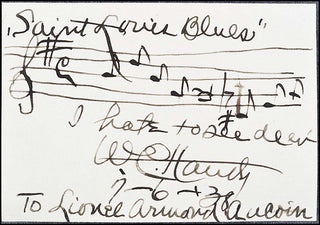 "Saint Louis Blues"
I hate to see deev
W.C. Handy
To Lionel Armond Aucoin